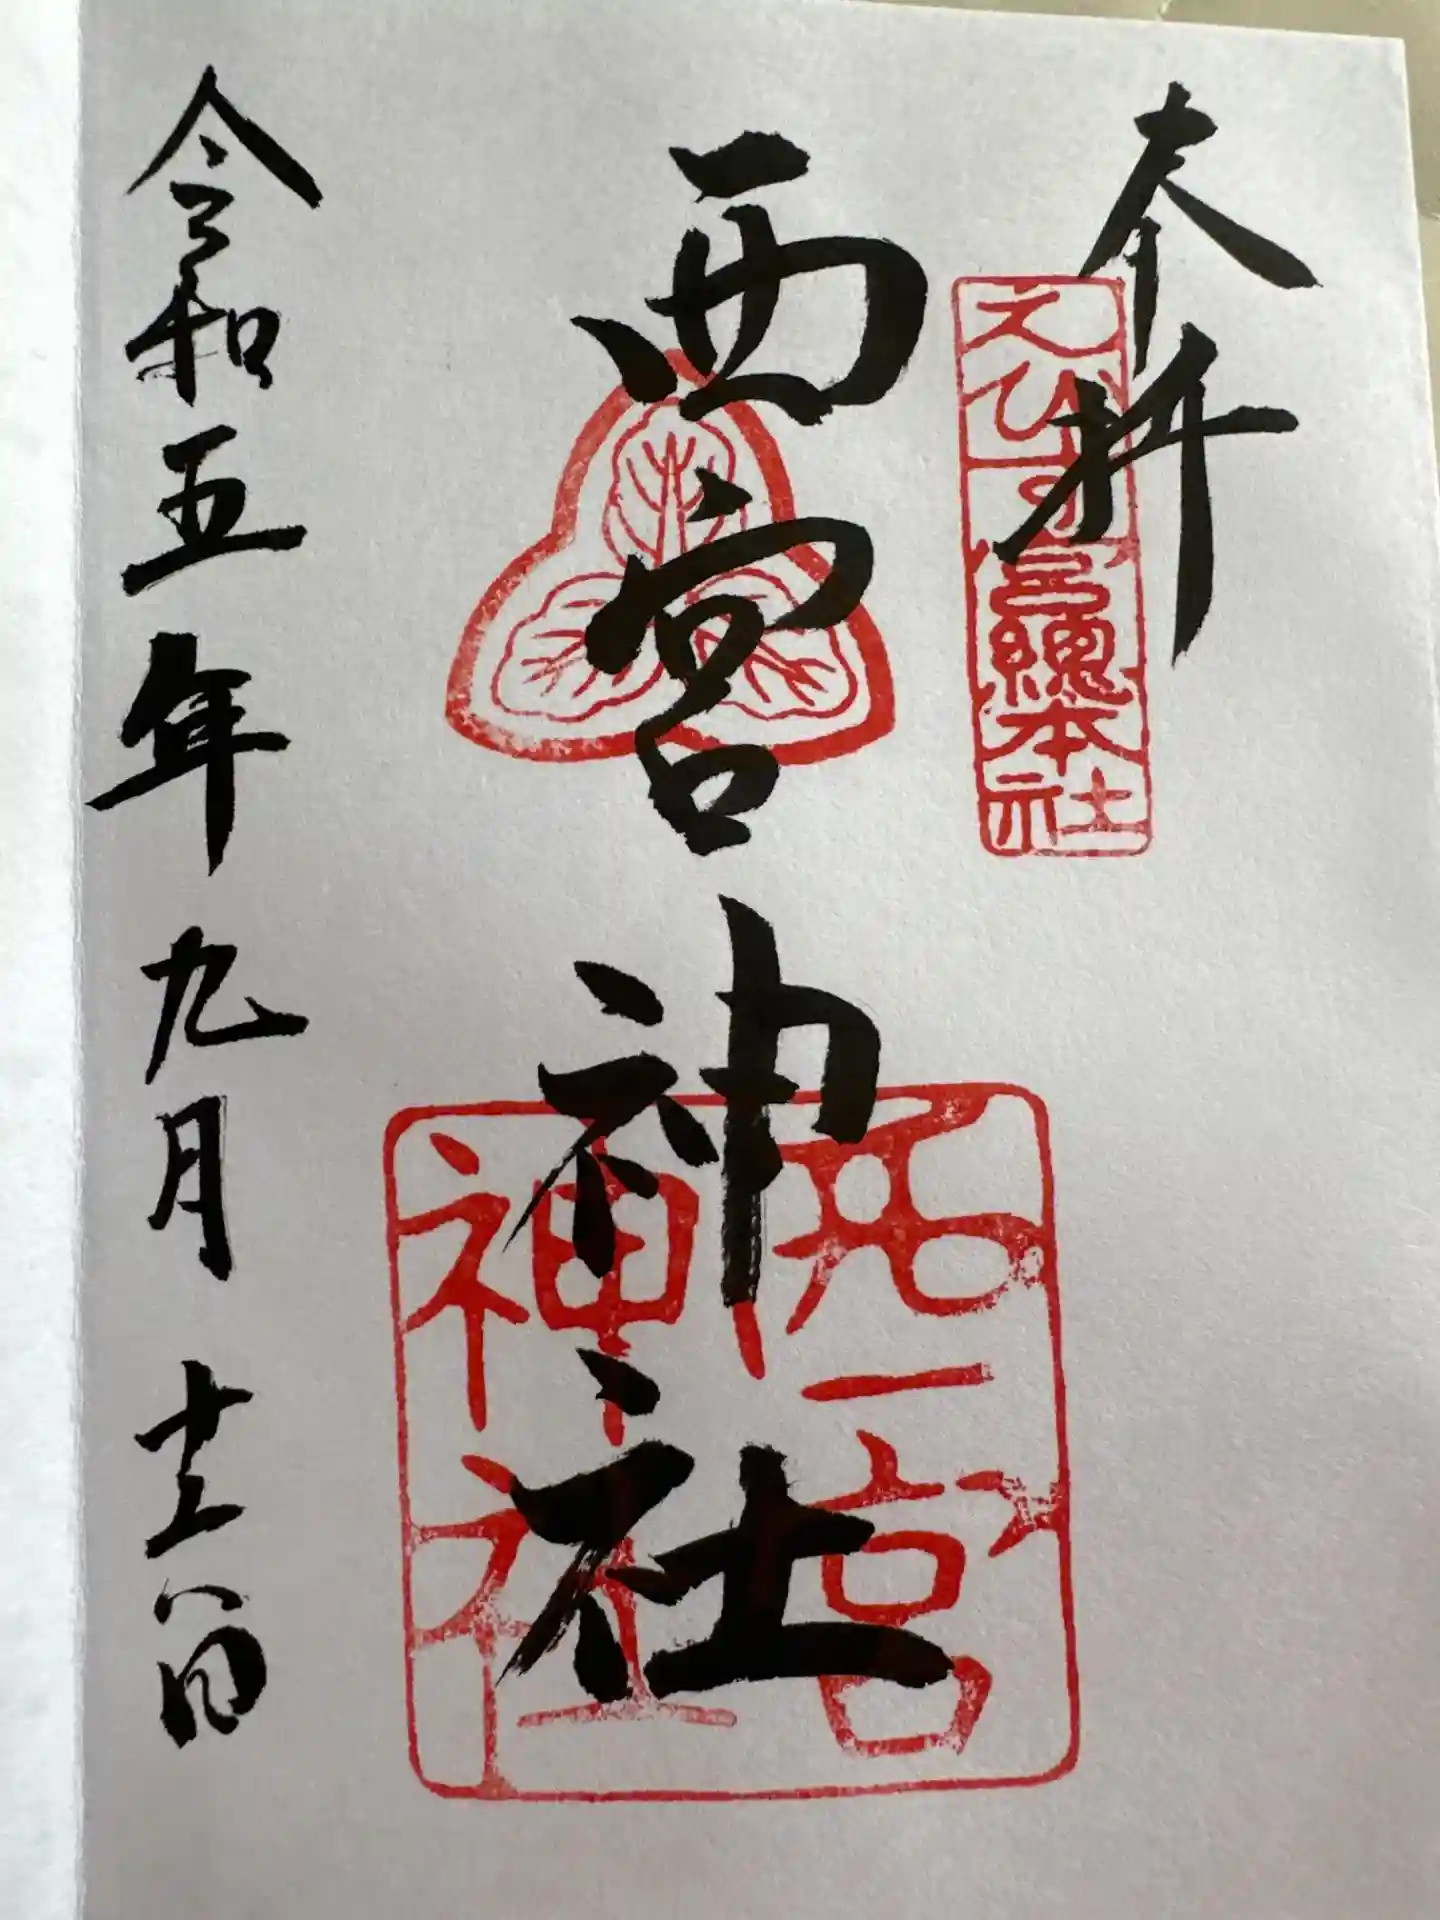 奉拝
えびす宮總本社
西宮神社
西宮神社
令和五年九月日